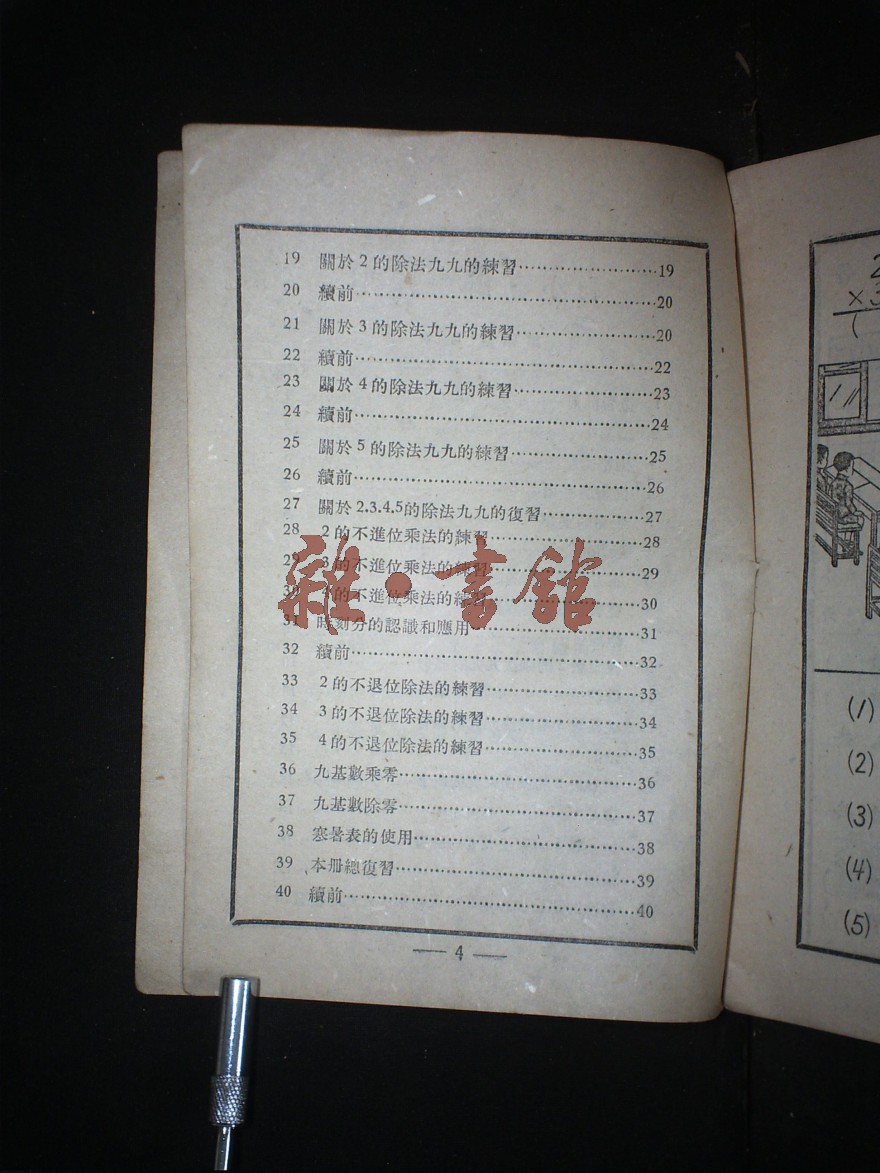 19 關於2的除法九九的練習························19
20 續前························20
21 關於3的除法九九的練習························20
22 續前························22
23 關於4的除法九九的練習························23
24 續前························24
25 關於5的除法九九的練習························25
26 續前························26
27 關於2.3.4.5的除法九九的復習························27
28 2的不進位乘法的練習························28
29 3的不進位乘法的練習························29
30 4的不進位乘法的練習························30
31 時刻分的認識和應用························31
32 續前························32
33 2的不退位除法的練習························33
34 3的不退位除法的練習························34
35 4的不退位除法的練習························35
36 九基數乘零························36
37 九基數除零························37
38 寒暑表的使用························38
39 本冊總復習························39
40 續前························40
— 4 —
雜·書館
2
×3
(
(1)
(2)
(3)
(4)
(5)